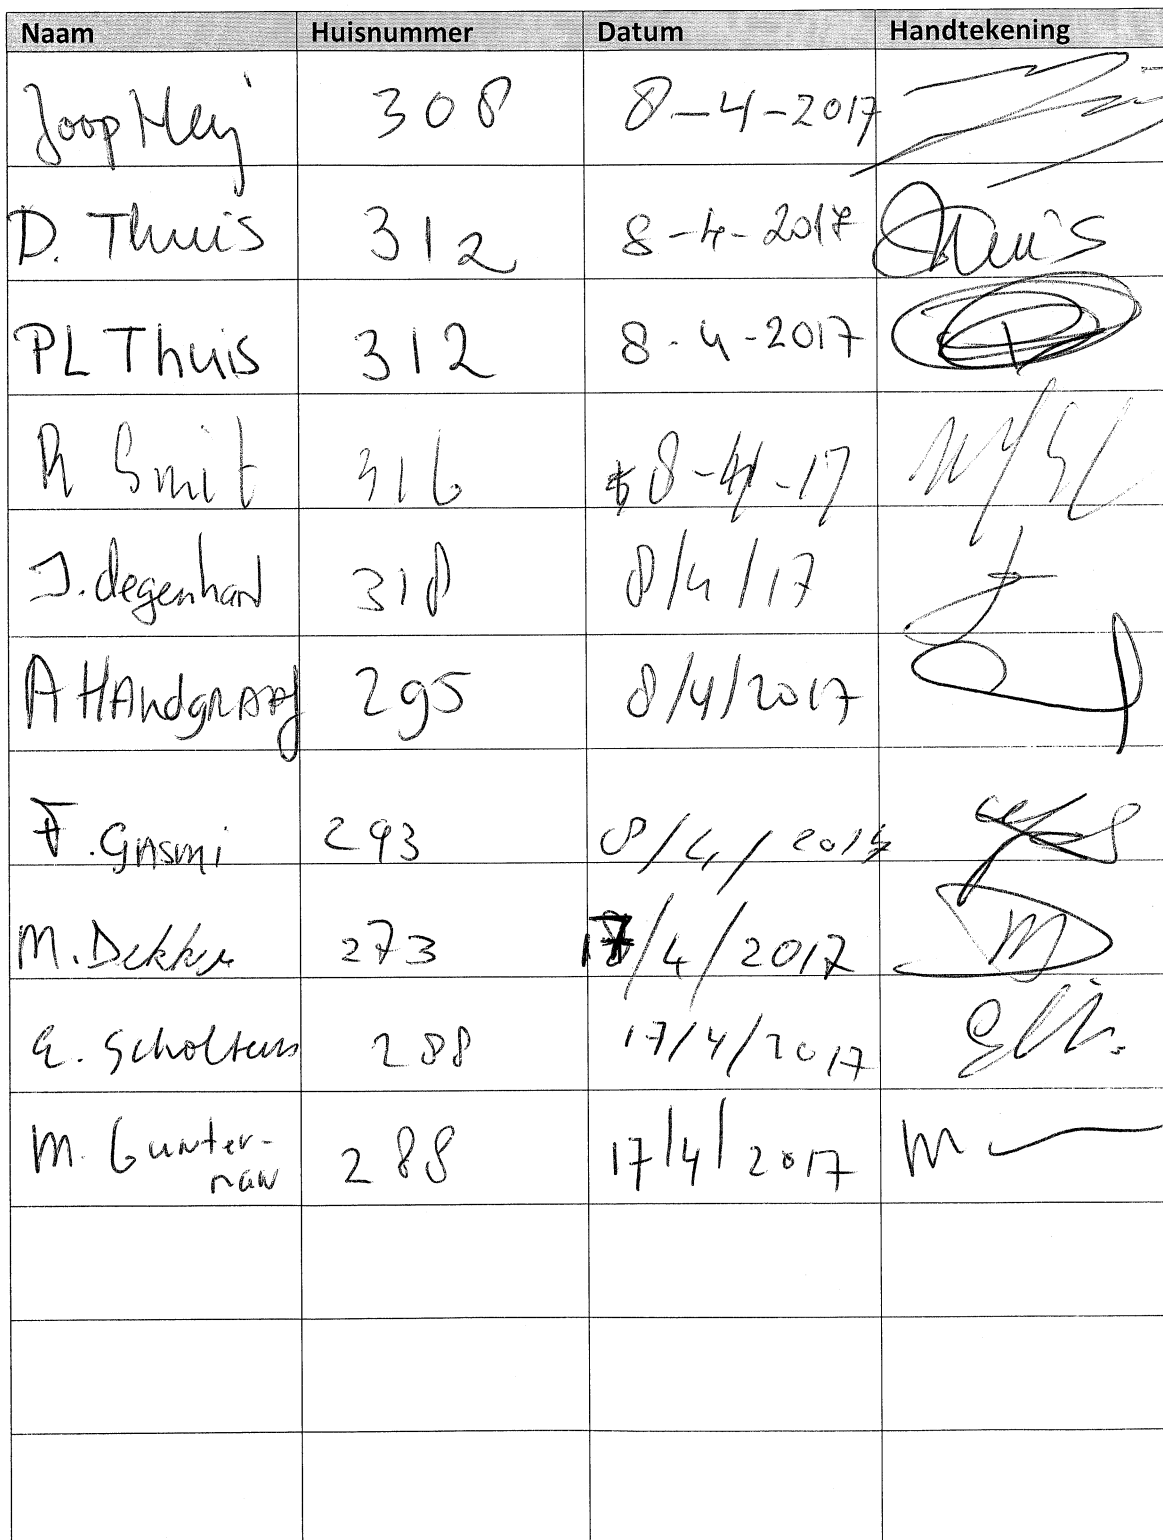 Naam Huisnummer Datum Handtekening
Joop Meij 308 8-4-2017
D. Thuis 312 8-4-2017 Thuis
PL Thuis 312 8-4-2017
R Smit 316 8-4-17
J. degenhard 318 8/4/17
A HANdgRAAf 295 8/4/2017
F. GASmi 293 8/4/2017
M. Dekker 273 17/4/2017 M
E. Scholtens 288 17/4/2017
M. Gunter- 288 17/4/2017 M
man